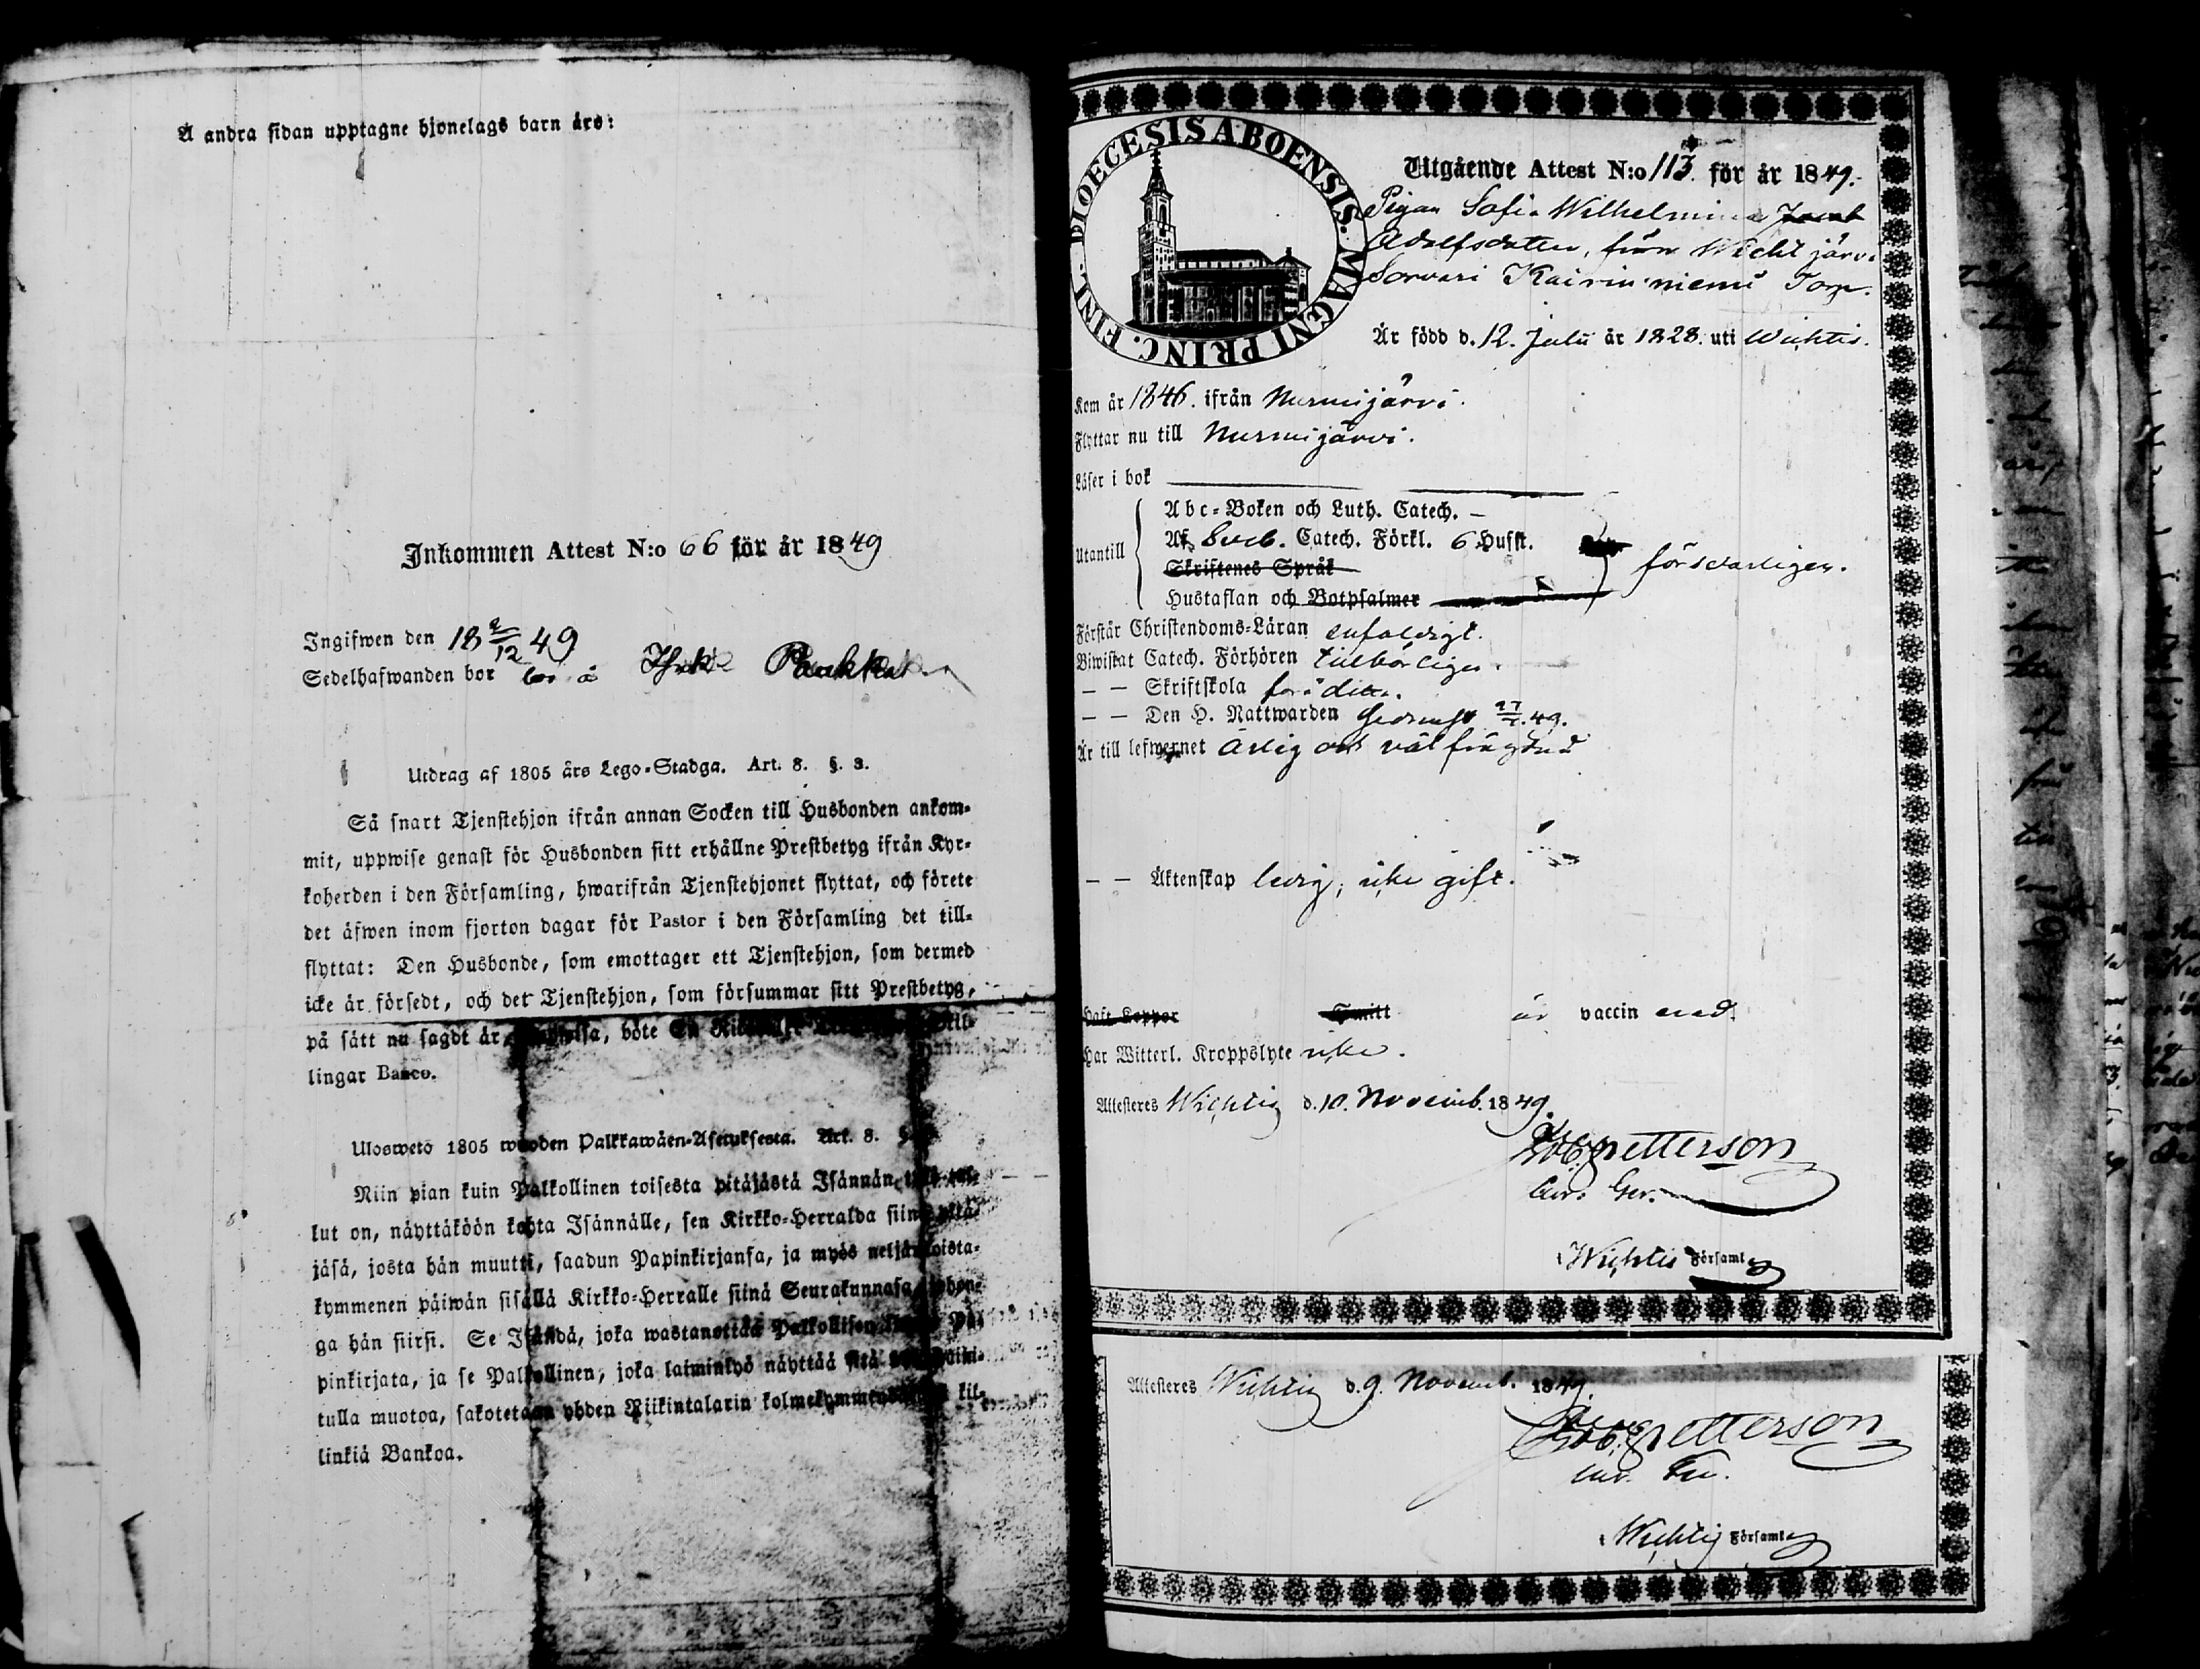 Å andra sidan upptagne hjonelags barn äro:
Inkommen Attest N:o 66 för år 1849
Ingifwen den 18 2/12 49
Sedelhafwanden bor
Utdrag af 1805 års Lego-Stadga. Art. 8. §. 3.
Så snart Tjenstehjon ifrån annan Socken till Husbonden ankom-
mit, uppwise genast för Husbonden sitt erhållne Prestbetyg ifrån Kyr-
koherden i den Församling, hwarifrån Tjenstehjonet flyttat, och förete
det äfwen inom fjorton dagar för Pastor i den Församling det till-
flyttat: Den Husbonde, som emottager ett Tjenstehjon, som dermed
icke är försedt, och det Tjenstehjon, som försummar sitt Prestbetyg,
på sätt nu sagdt är, böte En
lingar Banco.
Ulosweto 1805 wuoden Palkkawäen-Asetuksesta. Art. 8. §
Niin pian kuin Palkollinen toisesta pitäjästä Isännän
lut on, näyttäköön kohta Isännälle, sen Kirkko-Herralda siinä
jäsä, josta hän muutti, saadun Papinkirjansa, ja myös neljäntoista-
kymmenen päiwän sisällä Kirkko-Herralle siinä Seurakunnasa, johon-
ga hän siirsi. Se Isändä, joka wastanottaa Palkollisen Pa-
pinkirjata, ja se Palkollinen, joka laiminlyö näyttää sitä
tulla muotoa, sakotetaan yhden Riikintalarin kolmekymmendä kil-
linkiä Bankoa.
DIOECESIS ABOENSIS. MAGNI PRINC. FINL.
Utgående Attest N:o 113 för år 1849.
Pigan Sofia Wilhelmina
Adolfsdotter, från Wichtjärvi
Sorvari Kairinniemi Torp.
Är född d. 12. Julii år 1828. uti Wichtis.
Kom år 1846. ifrån Nurmijärvi.
Flyttar nu till Nurmijärvi.
Läser i bok
Utantill
Abc-Boken och Luth. Catech. –
Af Sveb. Catech. Förkl. 6 Husst.
Skriftenes Språk
Hustaflan och Botpsalmer
försvarligen.
Förstår Christendoms-Läran enfaldigt.
Biwistat Catech. Förhören tillbörligen.
— — Skriftskola
— — Den H. Nattwarden
Är till lefwernet ärlig och välfrägdad
— — Äktenskap ledig, icke gift.
Haft Koppor Hwitt är vaccinerad.
Har Witterl. Kroppslyte icke.
Attesteres Wichtis d. 10. Novemb. 1849.
Petterson
Wichtis Församl
Attesteres Wichtis d. 9. Novemb. 1849.
Petterson
Wichtis Församl